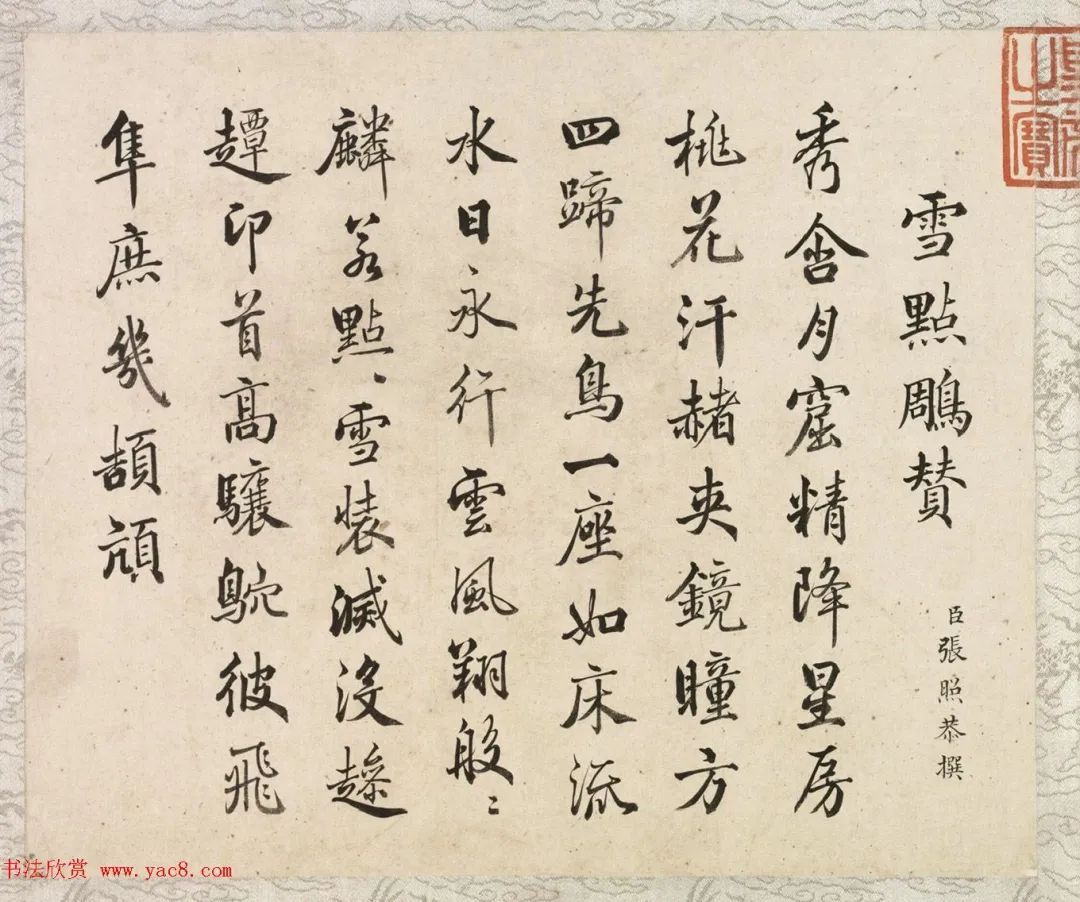 之寶
雪點鵰贊
臣張照恭撰
秀含月窟精降星房
桃花汗赭夾鏡瞳方
四蹄先鳥一座如床流
水日永行雲風翔般〻
麟若點〻雪裝滅沒䟃
𧽼卬首高驤鴥彼飛
隼庶幾頡頏
书法欣赏 www.yac8.com